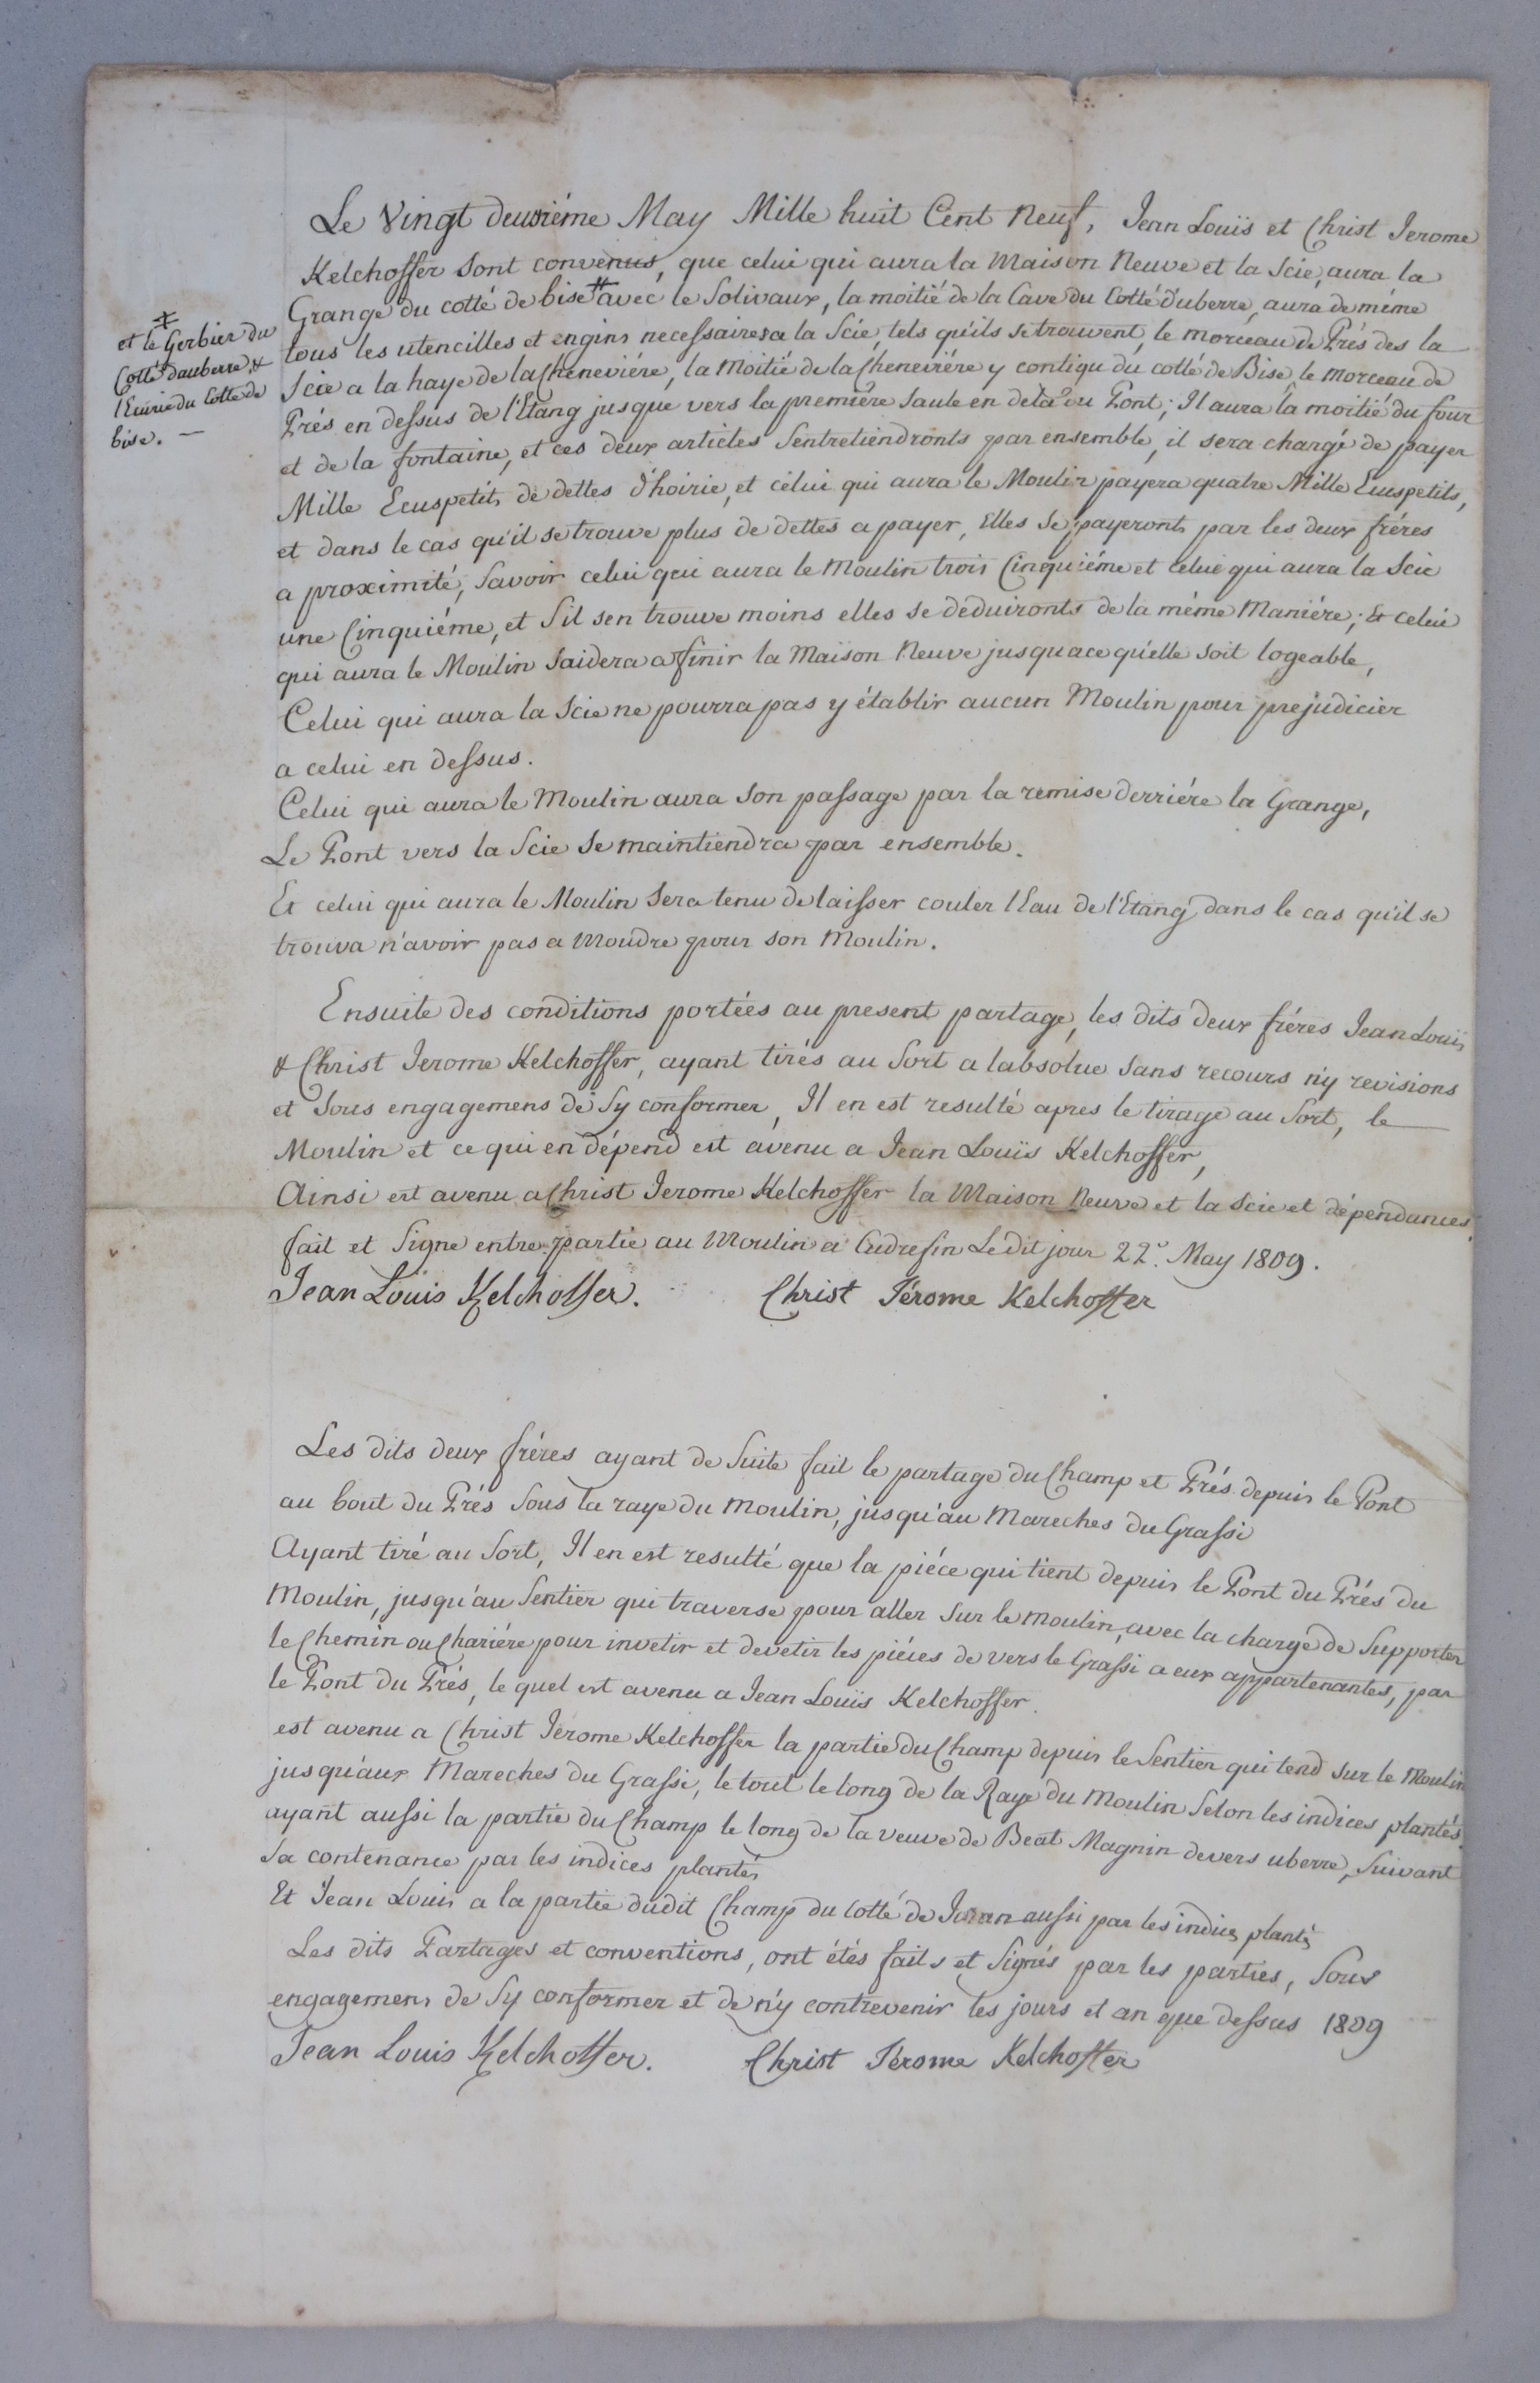 Le Vingt deuxiéme May Mille huit Cent Neuf, Jean Louïs et Christ Jerome
Kelchoffer sont convenus, que celui qui aura la Maison Neuve et la Scie, aura la
Grange du cotté de bise ⧧ avec le Solivaux, la moitié de la Cave du Cotté d'uberre, aura de méme
tous les utencilles et engins necessaires a la Scie, tels qu'ils se trouvent, le morceau de Prés des la
Scie a la haye de la Cheneviére, la Moitié de la Cheneviére y contigu du cotté de Bise, le morceau de
Prés en dessus de l'Etang jusque vers la premiére Saule en dela du Pont; Il aura la moitié du four
et de la fontaine, et ces deux articles Sentretiendronts par ensemble, il sera chargé de payer
Mille Ecuspetits de dettes d'hoirie, et célui qui aura le Moulin payera quatre Mille Ecuspetits,
et dans le cas qu'il se trouve plus de dettes a payer, Elles se payeronts par les deux fréres
a proximité, Savoir celui qui aura le Moulin trois Cinquiéme et Celui qui aura la Scie
une Cinquiéme, et S'il sen trouve moins elles se deduironts de la méme Maniére; Et celui
qui aura le Moulin Saidera a finir la Maison Neuve jusquace qu'elle soit logeable,
Celui qui aura la Scie ne pourra pas y établir aucun Moulin pour prejudicier
a celui en dessus.
Celui qui aura le Moulin aura son passage par la remise derriére la Grange,
Le Pont vers la Scie Se maintiendra par ensemble.
Et celui qui aura le Moulin Sera tenu de laisser couler l'Eau de l'Etang dans le cas qu'il se
trouva n'avoir pas a Moudre pour son Moulin.
⧧
et le Gerbier du
Cotté dauberre, &
l'Ecurie du Cotté de
bise. —
Ensuite des conditions portées au present partage, les dits deux fréres Jean Louïs
& Christ Jerome Kelchoffer, ayant tirés au Sort a labsolue sans recours n'y revisions
et Sous engagemens de Sy conformer, Il en est resulté apres le tirage au Sort, le
Moulin et ce qui en dépend est avenu a Jean Louïs Kelchoffer,
Ainsi est avenu a Christ Jerome Kelchoffer la Maison Neuve et la Scie et dépendances.
fait et Signe entre partie au Moulin a Cudrefin Le dit jour 22e. May 1809.
Jean Louis Kelchoffer. Christ Jérome Kelchoffer
Les dits deux fréres ayant de Suite fait le partage du Champ et Prés depuis le Pont
au bout du Prés Sous la raye du Moulin, jusqu'au Mareches du Grassi
Ayant tiré au Sort, Il en est resulté que la piéce qui tient depuis le Pont du Prés du
Moulin, jusqu'au Sentier qui traverse pour aller Sur le moulin, avec la charge de Supporter
le Chemin ou Chariére pour invetir et devetir les piéces de vers le Grassi a eux appartenantes, par
le Pont du Prés, le quel est avenu a Jean Louïs Kelchoffer.
est avenu a Christ Jérome Kelchoffer la partie du Champ depuis le Sentier qui tend Sur le Moulin
jusqu'aux Mareches du Grassi, le tout le long de la Raye du Moulin Selon les indices plantés.
ayant aussi la partie du Champ le long de la veuve de Beat Magnin devers uberre, Suivant
Sa contenance par les indices plantés
Et Jean Louis a la partie dudit Champ du Cotté de Joran aussi par les indices plantés
Les dits Partages et conventions, ont étés faits et Signés par les parties, Sous
engagemens de Sy conformer et de n'y contrevenir les jours et an que dessus 1809
Jean Louis Kelchoffer. Christ Jérome Kelchoffer